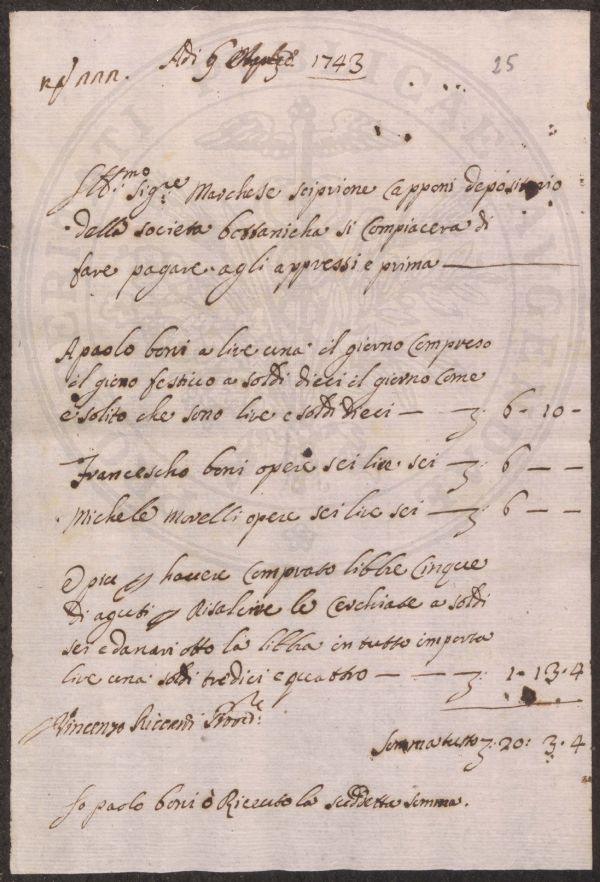 Adi 9 1743
25
Ill.mo Sig.re Marchese scipione Capponi depositario
della societa bottanicha si Compiacera di
fare pagare agli appressi e prima
A paolo boni a lire una il giorno Compreso
il giono festiuo a soldi dieci il giorno Come
è solito che sono lire e soldi dieci — 6 - 10 -
Francescho boni opere sei lire sei — 6 — —
Michele Morelli opere sei lire sei — 6 — —
E piu hauere Comprato libbre Cinque
di aguti Risalire le Cerchiate a soldi
sei e danari otto la libbra in tutto importa
lire una soldi tredici e quattro — 1 - 13 · 4
Vincenzo Riccardi Prov.re
Somma tutto 20: 3 · 4
Io paolo boni ò Riceuto la suddetta somma.